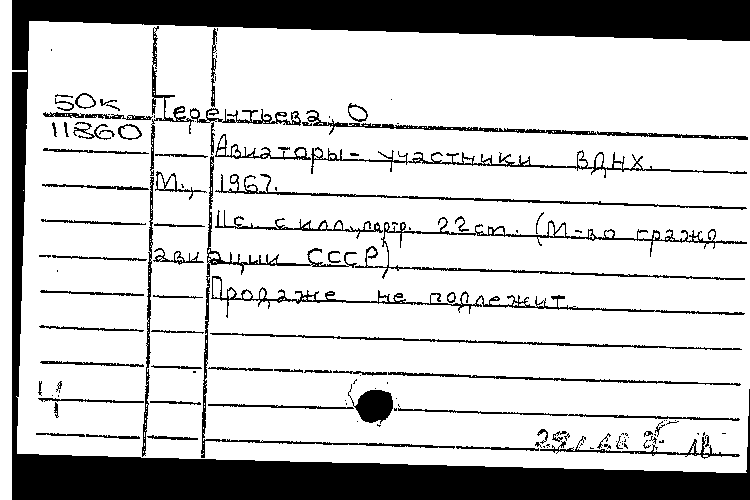 50к Терентьева, О
11860
Авиаторы - участники ВДНХ.
М., 1967.
11с. с илл., партр. 22см. (М-во гражд
авиации СССР).
Продаже не подлежит
4